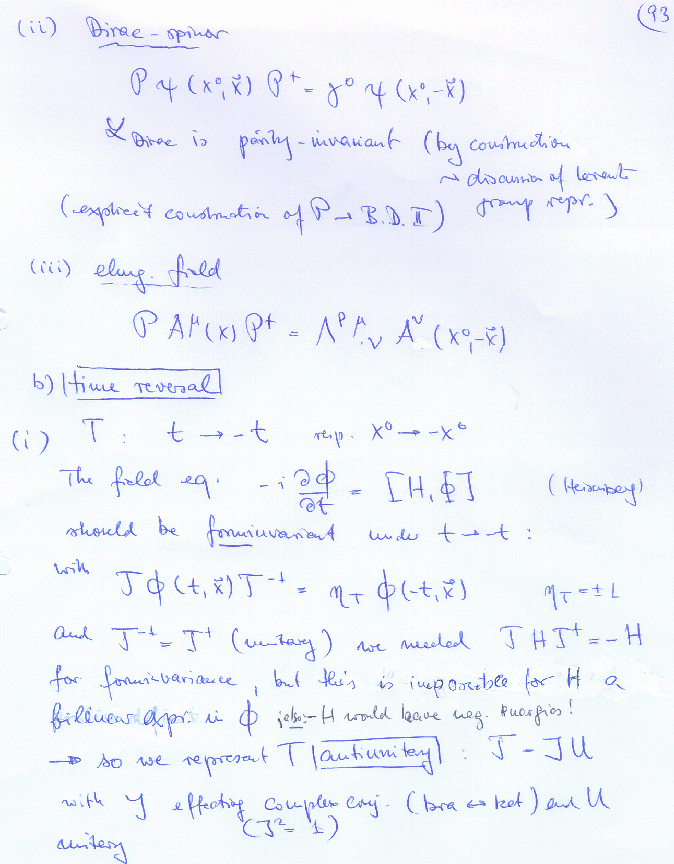 (93
(ii) Dirac-spinor
P ψ (x⁰, x⃗) P⁺ = γ⁰ ψ (x⁰, -x⃗)
ℒ Dirac is parity-invariant (by construction
~ discussion of Lorentz
(explicit construction of P → B.D. II) group repr.)
(iii) elmg. field
P A^μ (x) P⁺ = Λ^P μ_ν A^ν (x⁰, -x⃗)
b) time reversal
(i) T : t → -t resp. x⁰ → -x⁰
The field eq. -i ∂ϕ/∂t = [H, ϕ] (Heisenberg)
should be forminvariant under t → -t :
with T ϕ (t, x⃗) T⁻¹ = η_T ϕ (-t, x⃗) η_T = ± 1
and T⁻¹ = T⁺ (unitary) we needed T H T⁺ = - H
for forminvariance, but this is impossible for H a
bilinear expr. in ϕ ; also: -H would have neg. energies!
→ so we represent T antiunitary : T = J U
with J effecting complex conj. (bra ↔ ket) and U
(J² = 1)
unitary